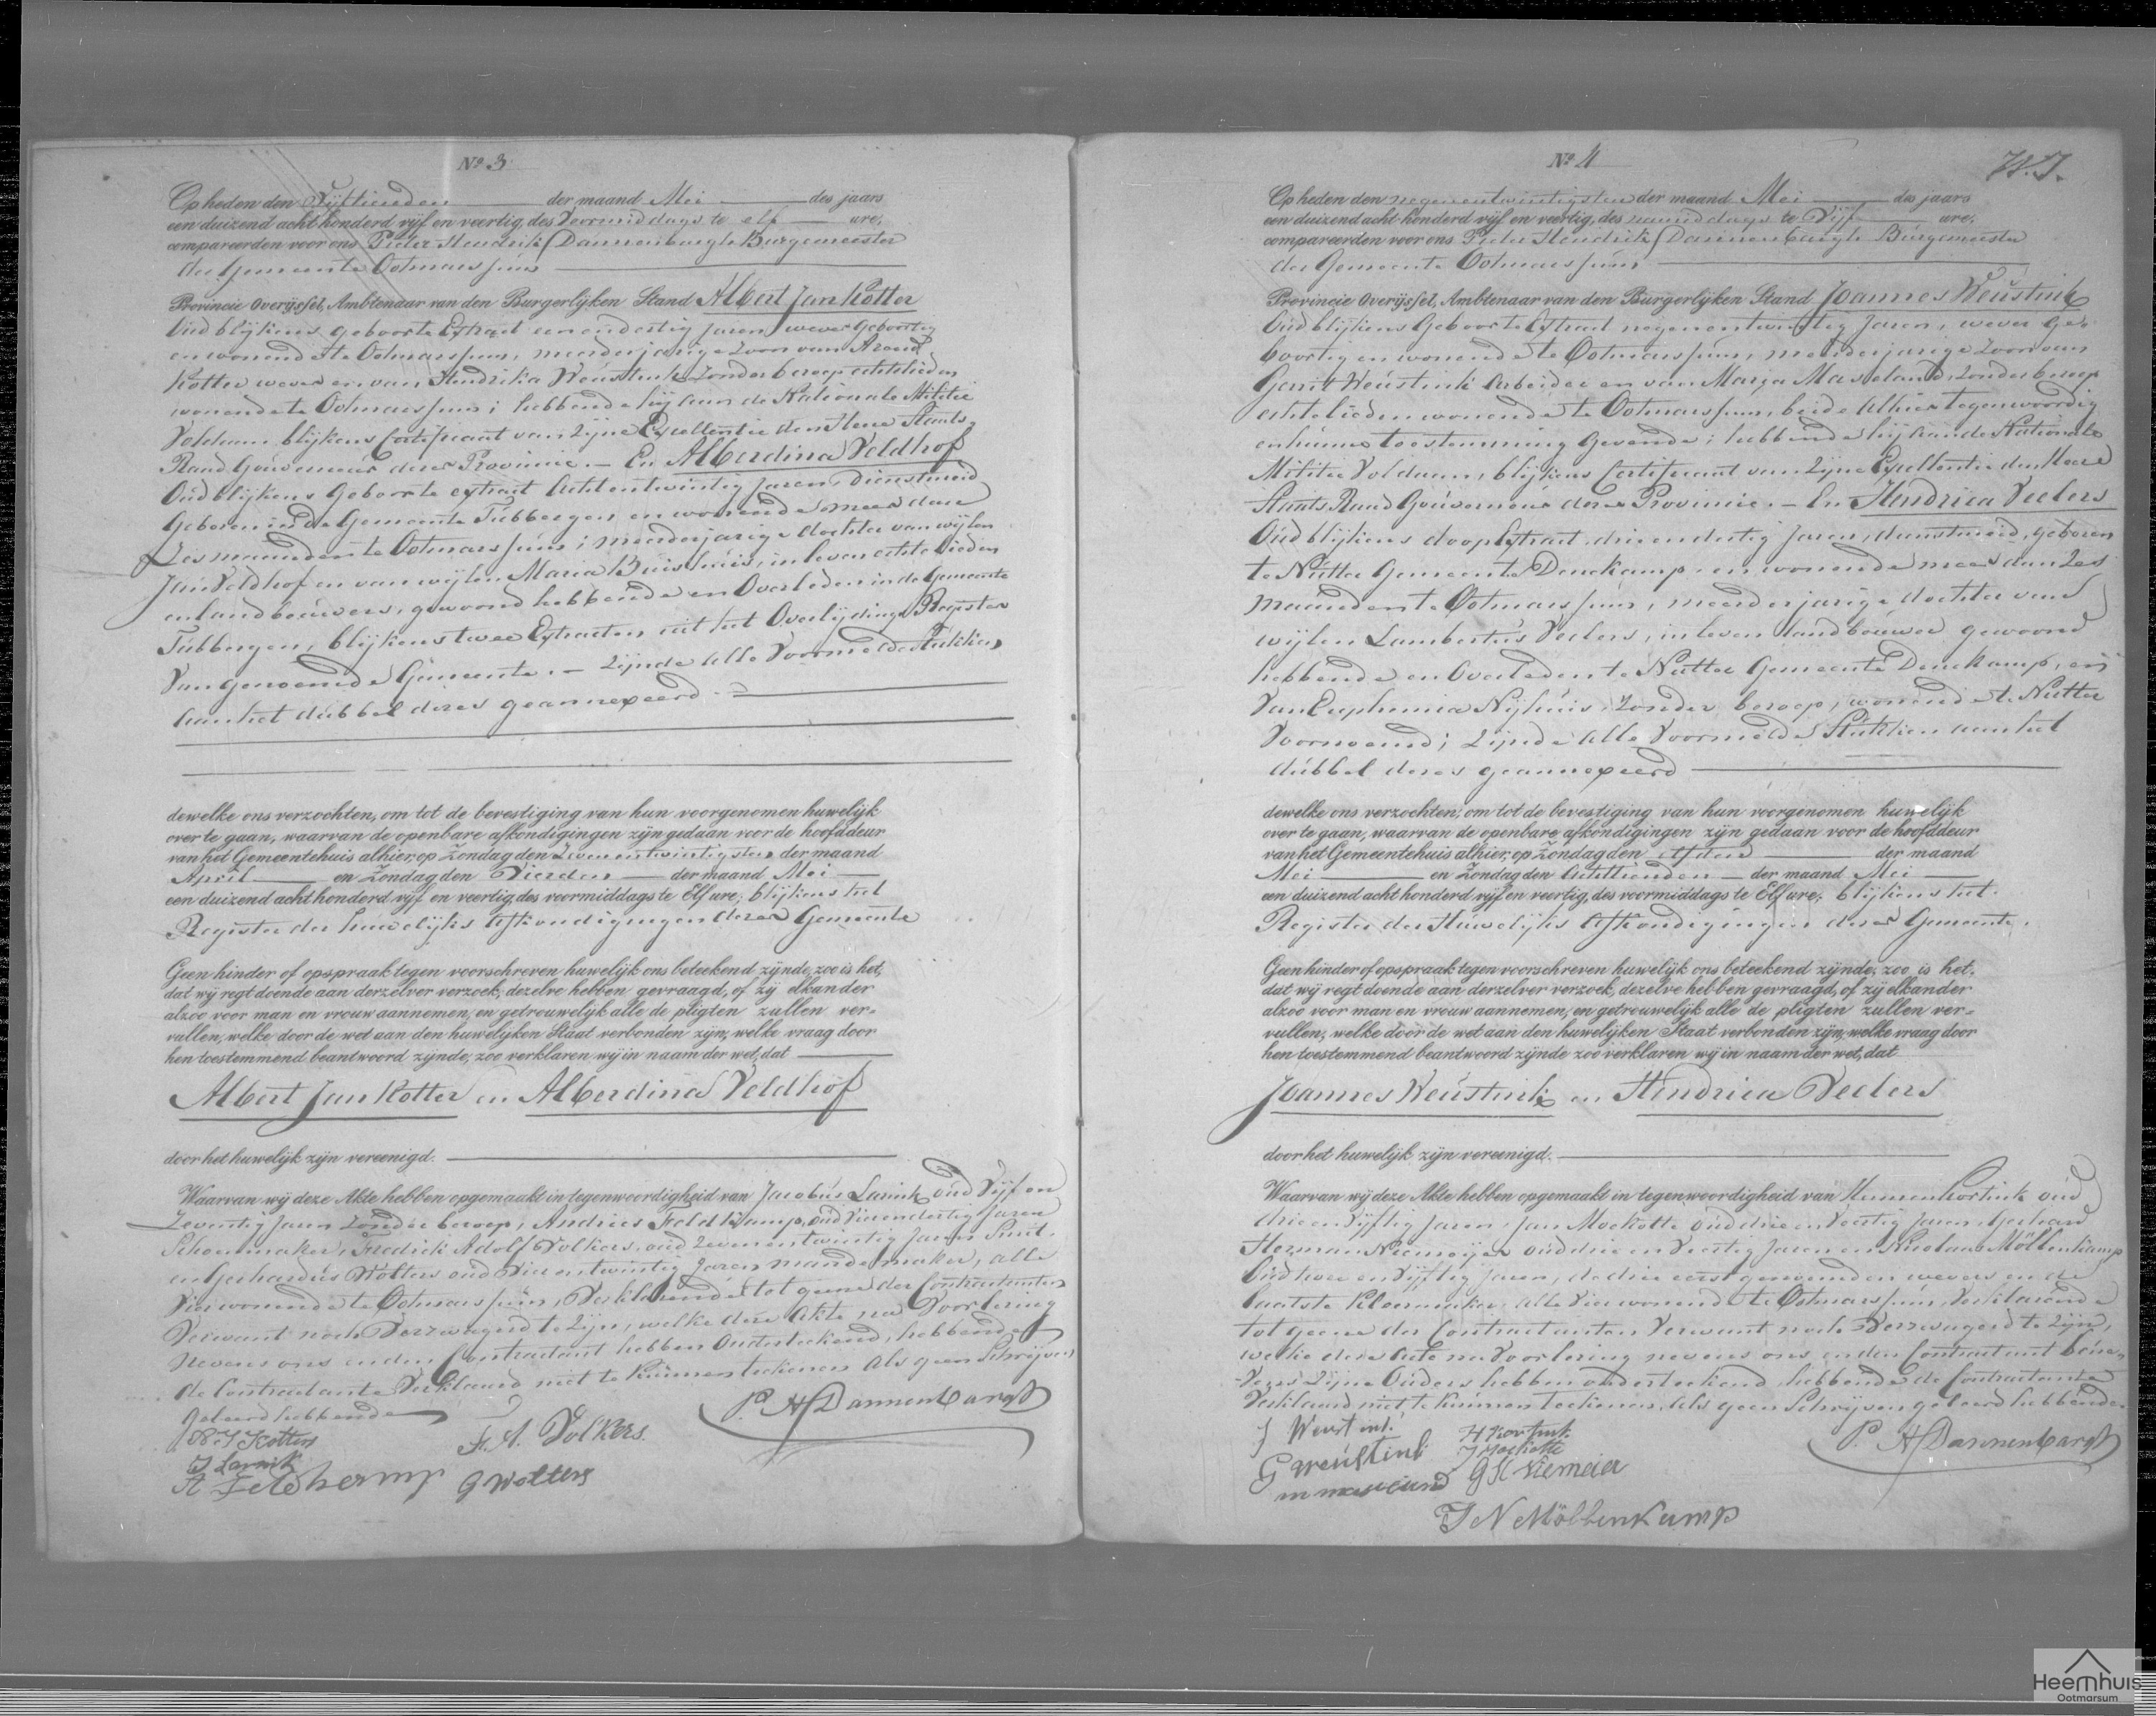 Nº 3
Op heden den Vijftienden der maand Mei des jaars
een duizend acht honderd vijf en veertig, des Voormiddags te elf ure,
compareerden voor ons Pieter Hendrik Dannenbargh Burgemeester
der Gemeente Ootmarssum
Provincie Overijssel, Ambtenaar van den Burgerlijken Stand Albert Jan Kotter
Oud blijkens geboorte Extract eenendertig Jaren wever Geboortig
en wonende te Ootmarssum, meerderjarige Zoon van Arend
Kotter wever en van Hendrika Weustink Zonder beroep echtelieden
wonende te Ootmarssum; hebbende hij aan de Nationale Militie
Voldaan blijkens Certificaat van Zijne Excellentie den Heer Staats
Raad Gouverneur dezer Provincie. — En Alberdina Veldhof
Oud blijkens Geboorte extract Achtentwintig Jaren, Dienstmeid
Geboren in de Gemeente Tubbergen en wonende meer dan
Zes maanden te Ootmarssum; meerderjarige dochter van wijlen
Jan Veldhof en van wijlen Maria Buishuis, in leven echtelieden
en landbouwers, gewoond hebbende en Overleden in de Gemeente
Tubbergen, blijkens twee Extracten uit het Overlijdings Register
Van genoemde Gemeente. — Zijnde alle Voormelde Stukken
aan het dubbel dezes geannexeerd
dewelke ons verzochten, om tot de bevestiging van hun voorgenomen huwelijk
over te gaan, waarvan de openbare afkondigingen zijn gedaan voor de hoofddeur
van het Gemeentehuis alhier, op Zondag den Zevenentwintigsten der maand
April en Zondag den Vierden der maand Mei
een duizend acht honderd vijf en veertig, des voormiddags te Elf ure; blijkens het
Register der huwelijks Afkondigingen dezer Gemeente
Geen hinder of opspraak tegen voorschreven huwelijk ons beteekend zijnde, zoo is het,
dat wij regt doende aan derzelver verzoek, dezelve hebben gevraagd, of zij elkander
alzoo voor man en vrouw aannemen, en getrouwelijk alle de pligten zullen ver=
vullen, welke door de wet aan den huwelijken Staat verbonden zijn, welke vraag door
hen toestemmend beantwoord zijnde, zoo verklaren wij in naam der wet, dat
Albert Jan Kotter en Alberdina Veldhof
door het huwelijk zijn vereenigd.
Waarvan wij deze Akte hebben opgemaakt in tegenwoordigheid van Jacobus Larink, oud Vijf en
Zeventig Jaren Zonder beroep, Andries Feldkamp, oud Vierendertig Jaren
Schoenmaker, Fredrik Adolf Volkers, oud Zevenentwintig Jaren Smit
en Gerhardus Wolters oud Vierentwintig Jaren mandemaker, alle
Vier wonende te Ootmarssum, Verklarende tot geene der Contractanten
Verwant noch Verzwagerd te Zijn, welke deze Akte na Voorlezing
Nevens ons en den Contractant hebben Onderteekend, hebbende
de Contractante Verklaard niet te kunnen teekenen als geen Schrijven
geleerd hebbende
A J Kotter
J Larink
A Feldkamp
F. A. Volkers.
G Wolters
P. H Dannenbargh
Nº 4
Op heden den negenentwintigsten der maand Mei des jaars
een duizend acht honderd vijf en veertig, des namiddags te Vijf ure,
compareerden voor ons Pieter Hendrik Dannenbargh Burgemeester
der Gemeente Ootmarssum
Provincie Overijssel, Ambtenaar van den Burgerlijken Stand Joannes Weustink
Oud blijkens Geboorte Extract negenentwintig Jaren, wever ge=
boortig en wonende te Ootmarssum, meerderjarige Zoon van
Gerrit Weustink Arbeider en van Marija Maseland, Zonder beroep
echtelieden wonende te Ootmarssum, beide Alhier tegenwoordig
en hunne toestemming Gevende; hebbende hij aan de Nationale
Militie Voldaan, blijkens Certificaat van Zijne Excellentie den Heer
Staats Raad Gouverneur dezer Provincie. — En Hendrica Veelers
Oud blijkens doop Extract drieendertig Jaren, dienstmeid, geboren
te Nutter Gemeente Denekamp en wonende meer dan Zes
maanden te Ootmarssum, meerderjarige dochter van
wijlen Lambertus Veelers, in leven landbouwer gewoond
hebbende en Overleden te Nutter Gemeente Denekamp, en
Van Euphemia Nijhuis, Zonder beroep, wonende te Nutter
Voornoemd; Zijnde alle Voormelde Stukken aan het
dubbel dezes geannexeerd
dewelke ons verzochten, om tot de bevestiging van hun voorgenomen huwelijk
over te gaan, waarvan de openbare afkondigingen zijn gedaan voor de hoofddeur
van het Gemeentehuis alhier, op Zondag den elfden der maand
Mei en Zondag den Achttienden der maand Mei
een duizend acht honderd vijf en veertig, des voormiddags te Elf ure; blijkens het
Register der Huwelijks Afkondigingen dezer Gemeente.
Geen hinder of opspraak tegen voorschreven huwelijk ons beteekend zijnde, zoo is het,
dat wij regt doende aan derzelver verzoek, dezelve hebben gevraagd, of zij elkander
alzoo voor man en vrouw aannemen, en getrouwelijk alle de pligten zullen ver=
vullen, welke door de wet aan den huwelijken Staat verbonden zijn, welke vraag door
hen toestemmend beantwoord zijnde zoo verklaren wij in naam der wet, dat
Joannes Weustink en Hendrica Veelers
door het huwelijk zijn vereenigd.
Waarvan wij deze Akte hebben opgemaakt in tegenwoordigheid van Hermen Kortink oud
drie en Vijftig Jaren, Jan Mockotte oud drie en Veertig Jaren, Gerhard
Herman Niemeijer oud drie en Veertig Jaren en Nicolaas Möllenkamp
Oud twee en Vijftig Jaren, de drie eerstgenoemden wevers en de
laatste Kleermaker, alle Vier wonende te Ootmarssum Verklarende
tot geene der Contractanten Verwant noch Verzwagerd te Zijn,
welke deze Akte na Voorlezing nevens ons en den Contractant bene=
=Vens Zijne Ouders hebben onderteekend hebbende de Contractante
Verklaard niet te kunnen teekenen, Als geen Schrijven geleerd hebbende.
J Weustink
G Weustink
m maseland
H Kortink
J Mockotte
G H Niemeier
J N Möllenkamp
P. H Dannenbargh
Heemhuis
Ootmarsum